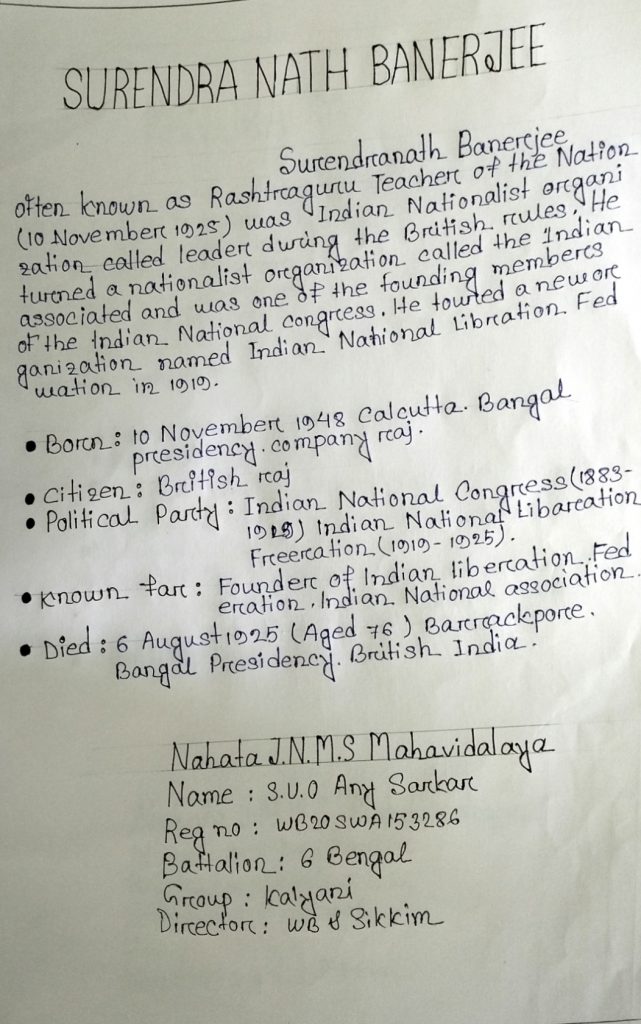 SURENDRA NATH BANERJEE
Surendranath Banerjee
often known as Rashtraguru Teacher of the Nation
(10 November 1925) was Indian Nationalist organi
zation called leader during the British rules, He
turned a nationalist organization called the Indian
associated and was one of the founding members
of the Indian National congress. He tourted a new or
ganization named Indian National Libration Fed
uration in 1919.
• Born: 10 November 1948 Calcutta. Bangal
presidency. company raj.
• Citizen: British raj
• Political Party: Indian National Congress (1883-
1919) Indian National Libaration
Freeration (1919-1925).
• Known far: Founder of Indian libercation. Fed
eration. Indian National association.
• Died: 6 August 1925 (Aged 76) Barrackpore.
Bangal Presidency. British India.
Nahata J.N.M.S Mahavidalaya
Name: S.U.O Any Sarkar
Reg no: WB20SWA153286
Battalion: 6 Bengal
Group: Kalyani
Director: WB & Sikkim